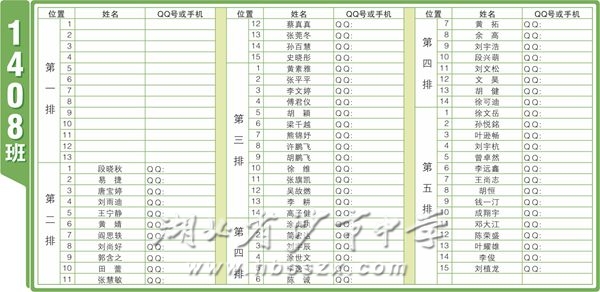 1408班
位置 姓名 QQ号或手机
第一排
1
2
3
4
5
6
7
8
9
10
11
12
13
第二排
1 段晓秋 QQ:
2 易捷 QQ:
3 唐宝婷 QQ:
4 刘雨迪 QQ:
5 王宁静 QQ:
6 黄婧 QQ:
7 阎思轶 QQ:
8 刘尚好 QQ:
9 郭含之 QQ:
10 田蕾 QQ:
11 张慧敏 QQ:
位置 姓名 QQ号或手机
12 蔡真真 QQ:
13 张莞冬 QQ:
14 孙百慧 QQ:
15 史晓彤 QQ:
第三排
1 黄素雅 QQ:
2 张平平 QQ:
3 李文婷 QQ:
4 傅君仪 QQ:
5 胡颖 QQ:
6 梁千越 QQ:
7 熊锦妤 QQ:
8 许鹏飞 QQ:
9 胡鹏飞 QQ:
10 徐维 QQ:
11 张旗凯 QQ:
12 吴故燃 QQ:
13 李耕 QQ:
14 QQ:
第四排
1 QQ:
2 QQ:
3 QQ:
4 涂世文 QQ:
5 QQ:
6 陈诚 QQ:
位置 姓名 QQ号或手机
第四排
7 黄拓 QQ:
8 余高 QQ:
9 刘宇浩 QQ:
10 段兴萌 QQ:
11 刘文松 QQ:
12 文昊 QQ:
13 胡健 QQ:
14 徐可迪 QQ:
第五排
1 徐文岳 QQ:
2 孙悦铭 QQ:
3 叶逊畅 QQ:
4 刘宇杭 QQ:
5 曾卓然 QQ:
6 李远鑫 QQ:
7 王尚志 QQ:
8 胡恒 QQ:
9 钱一汀 QQ:
10 成翔宇 QQ:
11 邓大江 QQ:
12 陈荣盛 QQ:
13 叶耀雄 QQ:
14 李俊 QQ:
15 刘植龙 QQ:
湖北省沙市中学
www.hbsszx.com